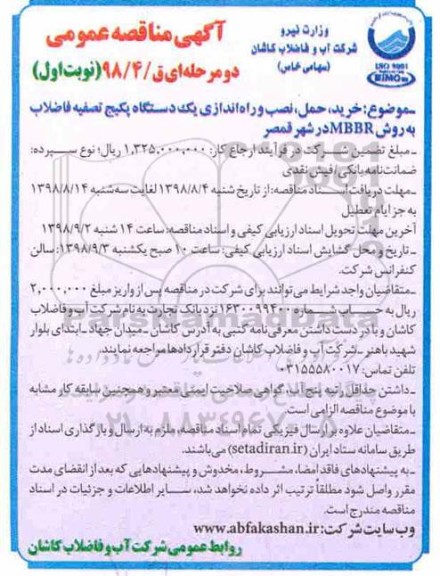 وزارت نیرو
شرکت آب و فاضلاب کاشان
(سهامی خاص)
ISO 9001
آگهی مناقصه عمومی
دو مرحله‌ای ق/۹۸/۴ (نوبت اول)
ـ موضوع: خرید، حمل، نصب و راه‌اندازی یک دستگاه پکیج تصفیه فاضلاب
به روش MBBR در شهر قمصر
ـ مبلغ تضمین شرکت در فرآیند ارجاع کار: ۱,۳۲۵,۰۰۰,۰۰۰ ریال؛ نوع سپرده:
ضمانت‌نامه بانکی / فیش نقدی
ـ مهلت دریافت اسناد مناقصه: از تاریخ شنبه ۱۳۹۸/۸/۴ لغایت سه‌شنبه ۱۳۹۸/۸/۱۴
به جز ایام تعطیل
آخرین مهلت تحویل اسناد ارزیابی کیفی و اسناد مناقصه: ساعت ۱۴ شنبه ۱۳۹۸/۹/۲
ـ تاریخ و محل گشایش اسناد ارزیابی کیفی: ساعت ۱۰ صبح یکشنبه ۱۳۹۸/۹/۳؛ سالن
کنفرانس شرکت.
ـ متقاضیان واجد شرایط می‌توانند برای شرکت در مناقصه پس از واریز مبلغ ۲,۰۰۰,۰۰۰
ریال به حساب شماره نزد بانک تجارت به نام شرکت آب و فاضلاب
کاشان و با در دست داشتن معرفی‌نامه کتبی به آدرس کاشان ـ میدان جهاد ـ ابتدای بلوار
شهید باهنر ـ شرکت آب و فاضلاب کاشان دفتر قراردادها مراجعه نمایند.
تلفن تماس: ۰۳۱۵۵۵۸۰۰۱۷
ـ داشتن حداقل رتبه پنج آب، گواهی صلاحیت ایمنی معتبر و همچنین سابقه کار مشابه
با موضوع مناقصه الزامی است.
ـ متقاضیان علاوه بر ارسال فیزیکی تمام اسناد مناقصه، ملزم به ارسال و بارگذاری اسناد از
طریق سامانه ستاد ایران (setadiran.ir) می‌باشند.
ـ به پیشنهادهای فاقد امضا، مشروط، مخدوش و پیشنهادهایی که بعد از انقضای مدت
مقرر واصل شود مطلقاً ترتیب اثر داده نخواهد شد، سایر اطلاعات و جزئیات در اسناد
مناقصه مندرج است.
وب سایت شرکت: www.abfakashan.ir
روابط عمومی شرکت آب و فاضلاب کاشان